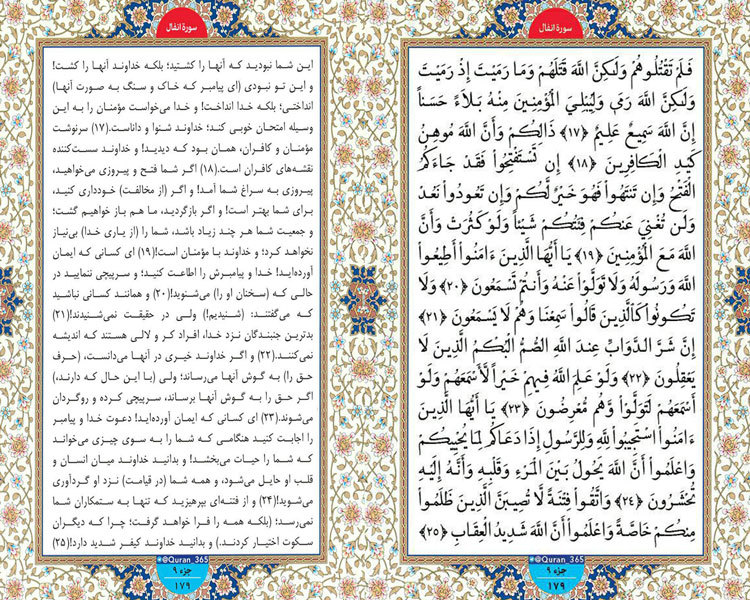 سورة انفال
فَلَمْ تَقْتُلُوهُمْ وَلَٰكِنَّ اللَّهَ قَتَلَهُمْ وَمَا رَمَيْتَ إِذْ رَمَيْتَ
وَلَٰكِنَّ اللَّهَ رَمَىٰ وَلِيُبْلِيَ الْمُؤْمِنِينَ مِنْهُ بَلَاءً حَسَنًا
إِنَّ اللَّهَ سَمِيعٌ عَلِيمٌ ﴿۱۷﴾ ذَٰلِكُمْ وَأَنَّ اللَّهَ مُوهِنُ
كَيْدِ الْكَافِرِينَ ﴿۱۸﴾ إِن تَسْتَفْتِحُوا فَقَدْ جَاءَكُمُ
الْفَتْحُ وَإِن تَنتَهُوا فَهُوَ خَيْرٌ لَّكُمْ وَإِن تَعُودُوا نَعُدْ
وَلَن تُغْنِيَ عَنكُمْ فِئَتُكُمْ شَيْئًا وَلَوْ كَثُرَتْ وَأَنَّ
اللَّهَ مَعَ الْمُؤْمِنِينَ ﴿۱۹﴾ يَا أَيُّهَا الَّذِينَ ءَامَنُوا أَطِيعُوا
اللَّهَ وَرَسُولَهُ وَلَا تَوَلَّوْا عَنْهُ وَأَنتُمْ تَسْمَعُونَ ﴿۲۰﴾ وَلَا
تَكُونُوا كَالَّذِينَ قَالُوا سَمِعْنَا وَهُمْ لَا يَسْمَعُونَ ﴿۲۱﴾
إِنَّ شَرَّ الدَّوَابِّ عِندَ اللَّهِ الصُّمُّ الْبُكْمُ الَّذِينَ لَا
يَعْقِلُونَ ﴿۲۲﴾ وَلَوْ عَلِمَ اللَّهُ فِيهِمْ خَيْرًا لَّأَسْمَعَهُمْ وَلَوْ
أَسْمَعَهُمْ لَتَوَلَّوْا وَّهُم مُّعْرِضُونَ ﴿۲۳﴾ يَا أَيُّهَا الَّذِينَ
ءَامَنُوا اسْتَجِيبُوا لِلَّهِ وَلِلرَّسُولِ إِذَا دَعَاكُمْ لِمَا يُحْيِيكُمْ
وَاعْلَمُوا أَنَّ اللَّهَ يَحُولُ بَيْنَ الْمَرْءِ وَقَلْبِهِ وَأَنَّهُ إِلَيْهِ
تُحْشَرُونَ ﴿۲۴﴾ وَاتَّقُوا فِتْنَةً لَّا تُصِيبَنَّ الَّذِينَ ظَلَمُوا
مِنكُمْ خَاصَّةً وَاعْلَمُوا أَنَّ اللَّهَ شَدِيدُ الْعِقَابِ ﴿۲۵﴾
@Quran_365
جزء ۹
۱۷۹
سورة انفال
این شما نبودید که آنها را کشتید؛ بلکه خداوند آنها را کشت!
و این تو نبودی (ای پیامبر که خاک و سنگ به صورت آنها)
انداختی؛ بلکه خدا انداخت! و خدا می‌خواست مؤمنان را به این
وسیله امتحان خوبی کند؛ خداوند شنوا و داناست.(۱۷) سرنوشت
مؤمنان و کافران، همان بود که دیدید! و خداوند سست‌کننده
نقشه‌های کافران است.(۱۸) اگر شما فتح و پیروزی می‌خواهید،
پیروزی به سراغ شما آمد! و اگر (از مخالفت) خودداری کنید،
برای شما بهتر است! و اگر بازگردید، ما هم باز خواهیم گشت؛
و جمعیت شما هر چند زیاد باشد، شما را (از یاری خدا) بی‌نیاز
نخواهد کرد؛ و خداوند با مؤمنان است!(۱۹) ای کسانی که ایمان
آورده‌اید! خدا و پیامبرش را اطاعت کنید؛ و سرپیچی ننمایید در
حالی که (سخنان او را) می‌شنوید!(۲۰) و همانند کسانی نباشید
که می‌گفتند: (شنیدیم!) ولی در حقیقت نمی‌شنیدند!(۲۱)
بدترین جنبندگان نزد خدا، افراد کر و لالی هستند که اندیشه
نمی‌کنند.(۲۲) و اگر خداوند خیری در آنها می‌دانست، (حرف
حق را) به گوش آنها می‌رساند؛ ولی (با این حال که دارند،)
اگر حق را به گوش آنها برساند، سرپیچی کرده و روگردان
می‌شوند.(۲۳) ای کسانی که ایمان آورده‌اید! دعوت خدا و پیامبر
را اجابت کنید هنگامی که شما را به سوی چیزی می‌خواند
که شما را حیات می‌بخشد! و بدانید خداوند میان انسان و
قلب او حایل می‌شود، و همه شما (در قیامت) نزد او گردآوری
می‌شوید!(۲۴) و از فتنه‌ای بپرهیزید که تنها به ستمکاران شما
نمی‌رسد؛ (بلکه همه را فرا خواهد گرفت؛ چرا که دیگران
سکوت اختیار کردند.) و بدانید خداوند کیفر شدید دارد!(۲۵)
@Quran_365
جزء ۹
۱۷۹